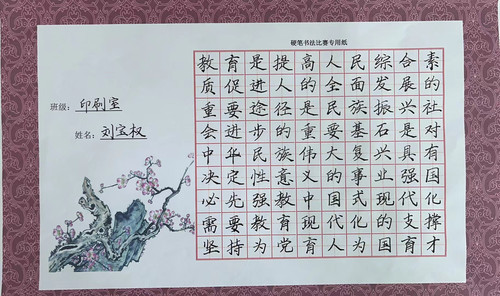 硬笔书法比赛专用纸
班级：印刷室
姓名：刘宝权
教育是提高人民综合素
质促进人的全面发展的
重要途径是民族振兴社
会进步的重要基石是对
中华民族伟大复兴具有
决定性意义的事业强国
必先强教中国式现代化
需要教育现代化的支撑
坚持为党育人为国育才